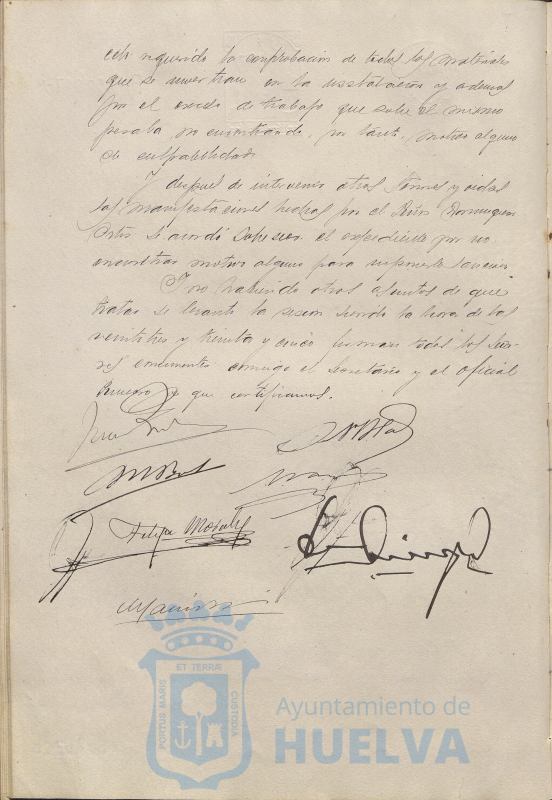 requerido la comprobación de todos los materiales
que se invertían en la instalación y además
por el exceso de trabajo que sobre el mismo
pesaba no encontrando, por tanto, motivo alguno
de culpabilidad.
Y después de intervenir otros Señores y oidas
las manifestaciones hechas por el Señor Dominguez
Ortiz se acordó sobreseer el expediente por no
encontrar motivo alguno para imponerle sanción.
Y no habiendo otros asuntos de que
tratar se levantó la sesion siendo la hora de las
veintitres y treinta y cinco firmando todos los Seño-
res concurrentes conmigo el Secretario y el Oficial
Primero de que certificamos.
Felipe Morales
PORTUS MARIS ET TERRÆ CUSTODIA
Ayuntamiento de
HUELVA